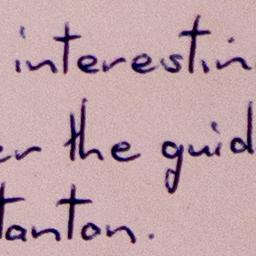 interestin
er the guid
tanton.